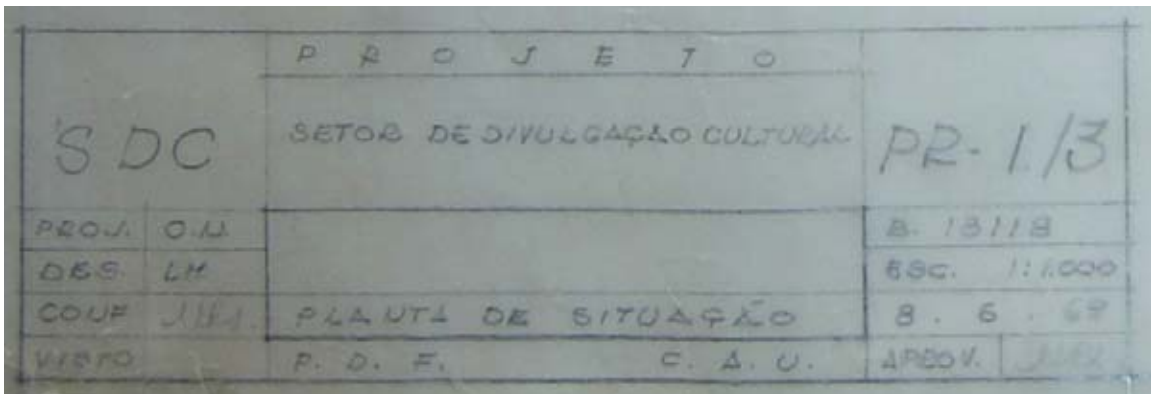 PROJETO
SDC
SETOR DE DIVULGAÇÃO CULTURAL
PR-1/3
PROJ. O.N.
B. 13118
DES. LM
ESC. 1:1.000
CONF
PLANTA DE SITUAÇÃO
8.6.
VISTO
P.D.F. C.A.U.
APROV.